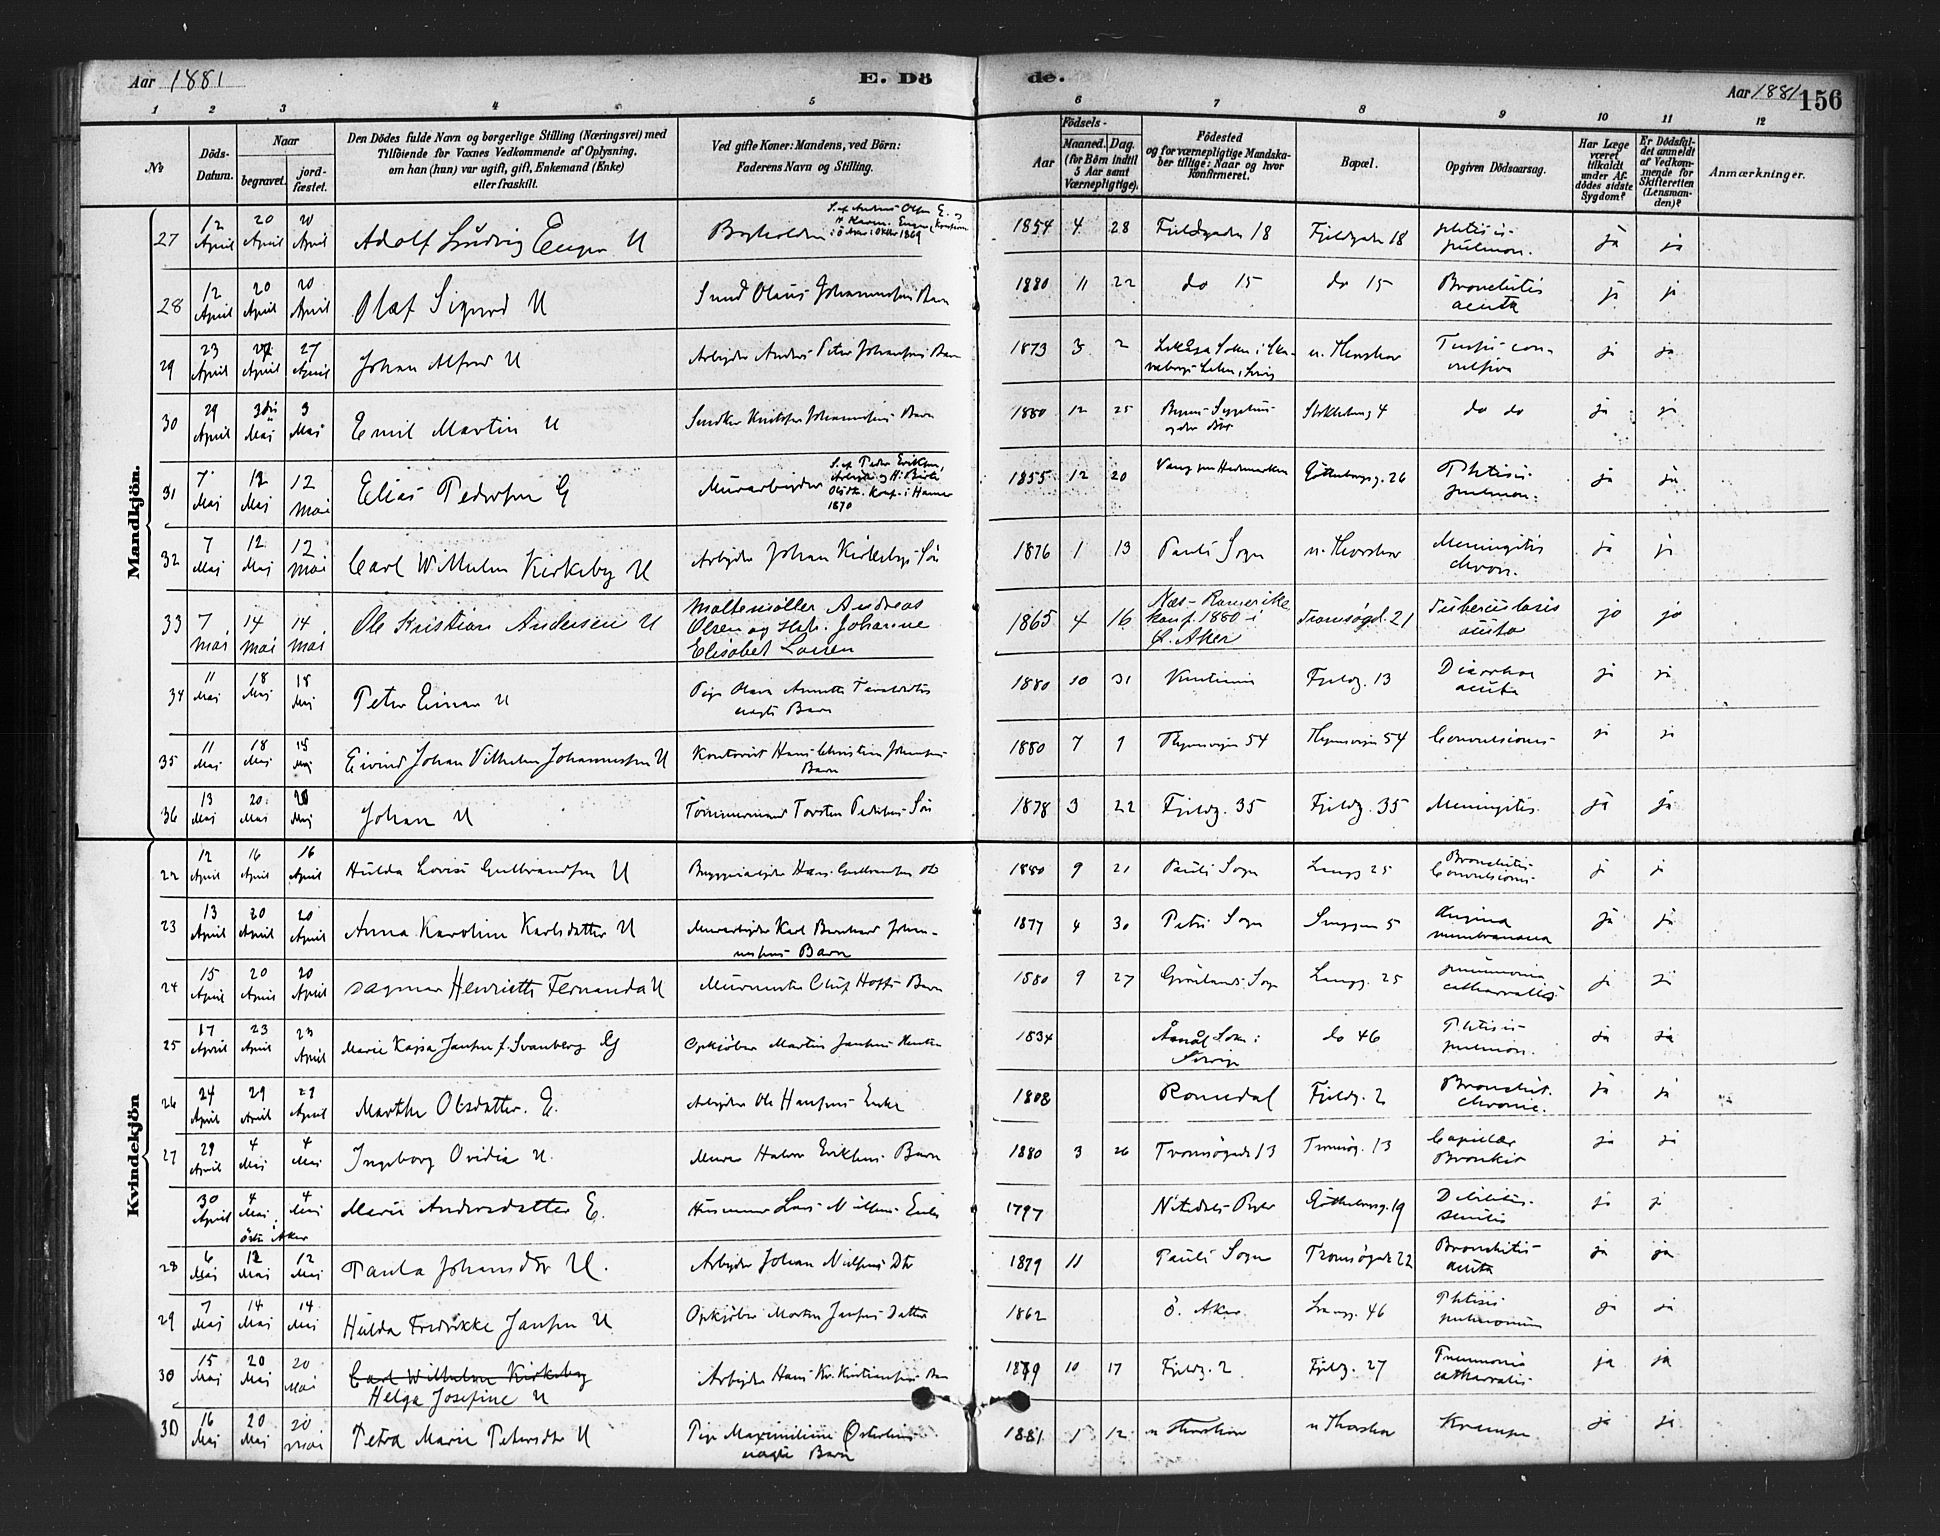 Aar 1881
E. Dö
de.
Aar 1881
156
1 2 3 4 5 6 7 8 9 10 11 12
No
Döds-Datum.
Naar
begravet.
jordfæstet.
Den Dödes fulde Navn og borgerlige Stilling (Næringsvei) med
Tilföiende for Voxnes Vedkommende af Oplysning,
om han (hun) var ugift, gift, Enkemand (Enke)
eller fraskilt.
Ved gifte Koner: Mandens, ved Börn:
Faderens Navn og Stilling.
Födsels-
Aar
Maaned. Dag.
(for Börn indtil
5 Aar samt
Værnepligtige).
Födested
og for værnepligtige Mandska-
ber tillige: Naar og hvor
konfirmeret.
Bopæl.
Opgiven Dödsaarsag.
Har Læge
været
tilkaldt
under Af-
dödes sidste
Sygdom?
Er Dödsfal-
det anmeldt
af Vedkom-
mende for
Skifteretten
(Lensman-
den)?
Anmærkninger.
Mandkjön.
27 12 April 20 April 20 April Adolf Ludvig Enger U 1854 4 28 18 18 phtisis pulmon. ja ja
28 12 April 20 April 20 April Olaf Sigurd U Smed Olaus Johannesens Barn 1880 11 22 do 15 do 15 Bronchitis acuta ja ja
29 23 April 27 April 27 April Johan Alfred U Arbeider Anders Peter Johansens Barn 1873 3 2 n. Thorshov Tussis convulsiva ja ja
30 29 April 3die Mai 3 Mai Emil Martin U Johannesens Barn 1880 12 25 4 do do ja ja
31 7 Mai 12 Mai 12 Mai Elias Pedersen G Murarbeider S. af Peder Eriksen, 1870 1855 12 20 Vang paa Hedemarken Götheborgg. 26 Phtisis pulmon. ja ja
32 7 Mai 12 Mai 12 Mai Carl Wilhelm Kirkeby U Arbeider Johan Kirkebys Sön 1876 1 13 Pauli Sogn n. Thorshov Meningitis chron. ja ja
33 7 Mai 14 Mai 14 Mai Ole Kristian Andersen U Maltemöller Andreas Olsen og Hst. Johanne Elisabet Larsen 1865 4 16 Næs-Romerike konf. 1880 i Ö. Aker Tromsøgd. 21 Tuberculosis acuta ja ja
34 11 Mai 18 Mai 18 Mai Peter Einar U Pige Annette ægte Barn 1880 10 31 Fjeldg. 13 Diarrhoe acuta ja ja
35 11 Mai 18 Mai 18 Mai Eivind Johan Vilhelm Johannessen U Kontorist Hans Christian Barn 1880 7 9 54 54 Convulsiones ja ja
36 13 Mai 20 Mai 20 Mai Johan U Tömmermand Torsten Sön 1878 3 22 Fjeldg. 35 Fjeldg. 35 Meningitis ja ja
Kvindekjön
22 12 April 16 April 16 April Hulda Lovise Gulbrandsen U Hans Gulbrandsens Dtr 1880 9 21 Pauli Sogn Langg. 25 Bronchitis Convulsiones ja ja
23 13 April 20 April 20 April Anna Karoline Karlsdatter U Murarbeider Karl Bernhard Johannesens Barn 1877 4 30 Petri Sogn 5 Angina membranacea ja ja
24 15 April 20 April 20 April Dagmar Henriette Fernanda U Murmester Barn 1880 9 27 Grönlands Sogn Langg. 25 pneumonia catharralis ja ja
25 17 April 23 April 23 April Marie Kajsa Jansen f. Svanberg G Opkjöber Martin Jansens 1834 Åmål Sokn i Sverige do 46 Phtisis pulmon. ja ja
26 24 April 29 April 29 April Marthe Olsdatter. E. Arbeider Ole Hansens Enke 1808 Romedal Fjeldg. 2 Bronchit. chronic. ja ja
27 29 April 4 Mai 4 Mai Ingeborg Ovidia U. Murer Halvor Eriksens Barn 1880 3 26 Tromsögade 13 Tromsög. 13 Capillær Bronkit ja ja
30 April 4 Mai östre Aker 4 Mai Marie Andersdatter E. Husmand Lars Nilsens Enke 1797 Götheborgg. 19 Debilitas senilis ja ja
28 6 Mai 12 Mai 12 Mai Paula Johansdtr U. Arbeider Johan Nilsens Dtr 1879 11 Pauli Sogn Tromsögade 22 Bronchitis acuta ja ja
29 7 Mai 14 Mai 14 Mai Hulda Fredrikke Jansen U Opkjöber Morten Jansens Datter 1862 Ö. Aker Langg. 46 Phtisis pulmonum ja ja
30 15 Mai 20 Mai 20 Mai Carl Wilhelm Kirkeby Helga Josefine U Arbeider Hans Kr. Kristiansens Barn 1879 10 17 Fjeldg. 2 Fjeldg. 27 Pneumonia catharralis ja ja
30 16 Mai 20 Mai 20 Mai Petra Marie Petersdtr U Pige Maximiliane ægte Barn 1881 1 12 n Thorshov n Thorshov Krampe ja ja